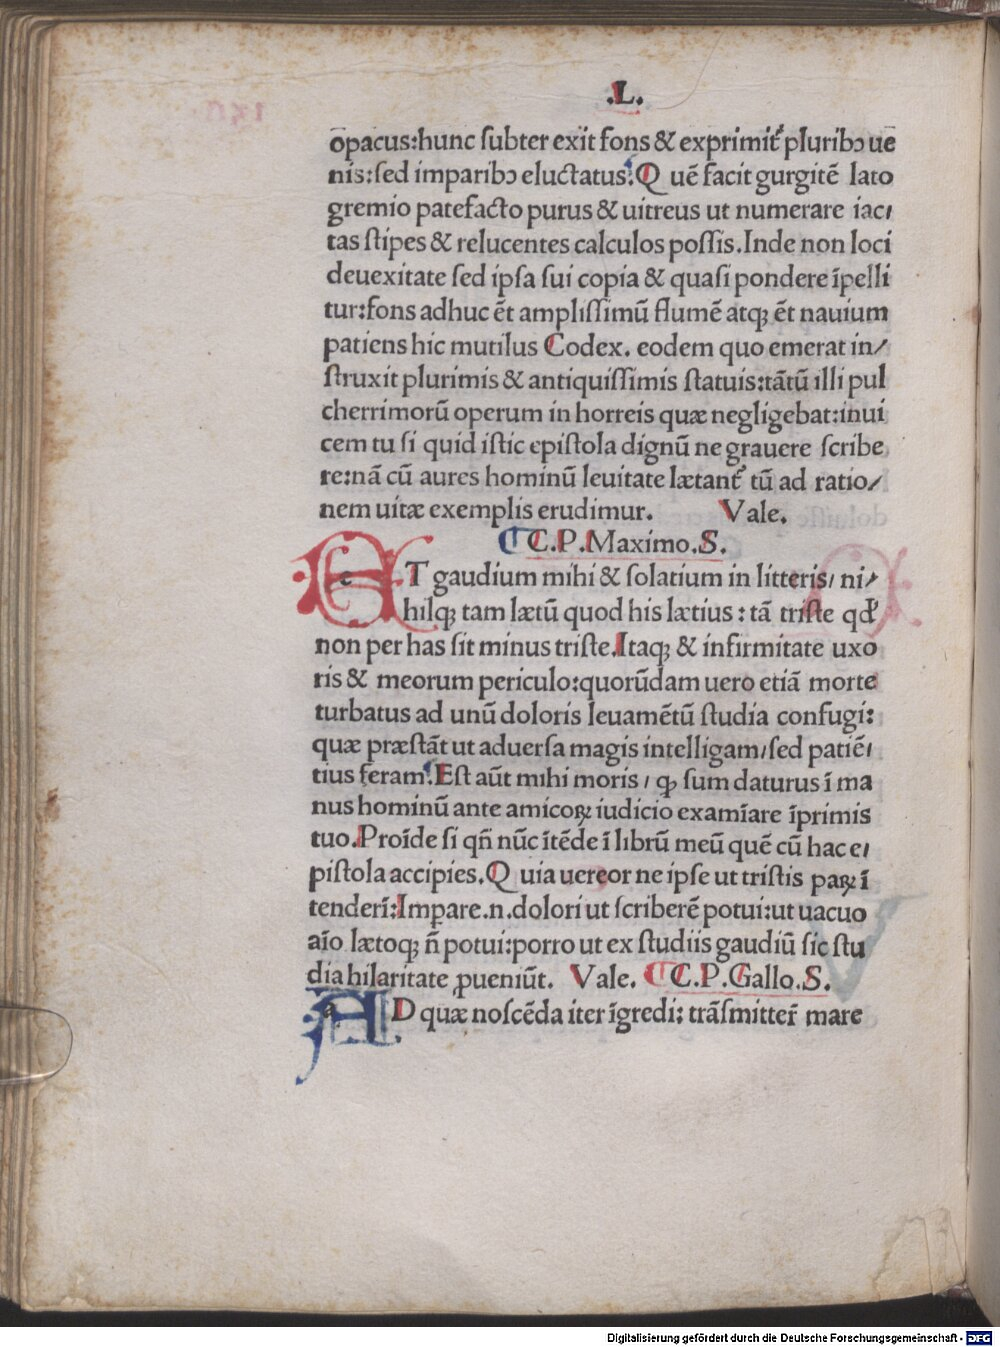 .L.
opacus:hunc ſubter exit fons & exprimit᷑ pluribꝯ ue
nis:ſed imparibꝯ eluctatus.Q uē facit gurgitē lato
gremio patefacto purus & uitreus ut numerare iac/
tas ſtipes & relucentes calculos poſſis.Inde non loci
deuexitate ſed ipſa ſui copia & quaſi pondere īpelli
tur:fons adhuc ēt ampliſſimū flumē atqꝫ ēt nauium
patiens hic mutilus Codex. eodem quo emerat in/
ſtruxit plurimis & antiquiſſimis ſtatuis:tātū illi pul
cherrimorū operum in horreis quæ negligebat:inui
cem tu ſi quid iſtic epiſtola dignū ne grauere ſcribe
re:nā cū aures hominū leuitate lætant᷑ tū ad ratio/
nem uitæ exemplis erudimur. Vale.
C.P.Maximo.S.
ET gaudium mihi & ſolatium in litteris/ ni/
hilqꝫ tam lætū quod his lætius : tā triſte qd᷑
non per has ſit minus triſte.Itaqꝫ & infirmitate uxo
ris & meorum periculo:quorūdam uero etiā morte
turbatus ad unū doloris leuamētū ſtudia confugi:
quæ præſtāt ut aduerſa magis intelligam/ſed patiē/
tius feram.Eſt aūt mihi moris / ꝙ ſum daturus ī ma
nus hominū ante amicoꝝ iudicio examīare īprimis
tuo.Proīde ſi qñ nūc ītēde ī librū meū quē cū hac e/
piſtola accipies.Q uia uereor ne ipſe ut triſtis paꝝ ī
tenderī:Impare.n.dolori ut ſcriberē potui:ut uacuo
aīo lætoqꝫ ñ potui:porro ut ex ſtudiis gaudiū ſic ſtu
dia hilaritate ꝓueniūt. Vale. C.P.Gallo.S.
AD quæ noſcēda iter īgredi: trāſmitter̄ mare
Digitalisierung gefördert durch die Deutsche Forschungsgemeinschaft - DFG